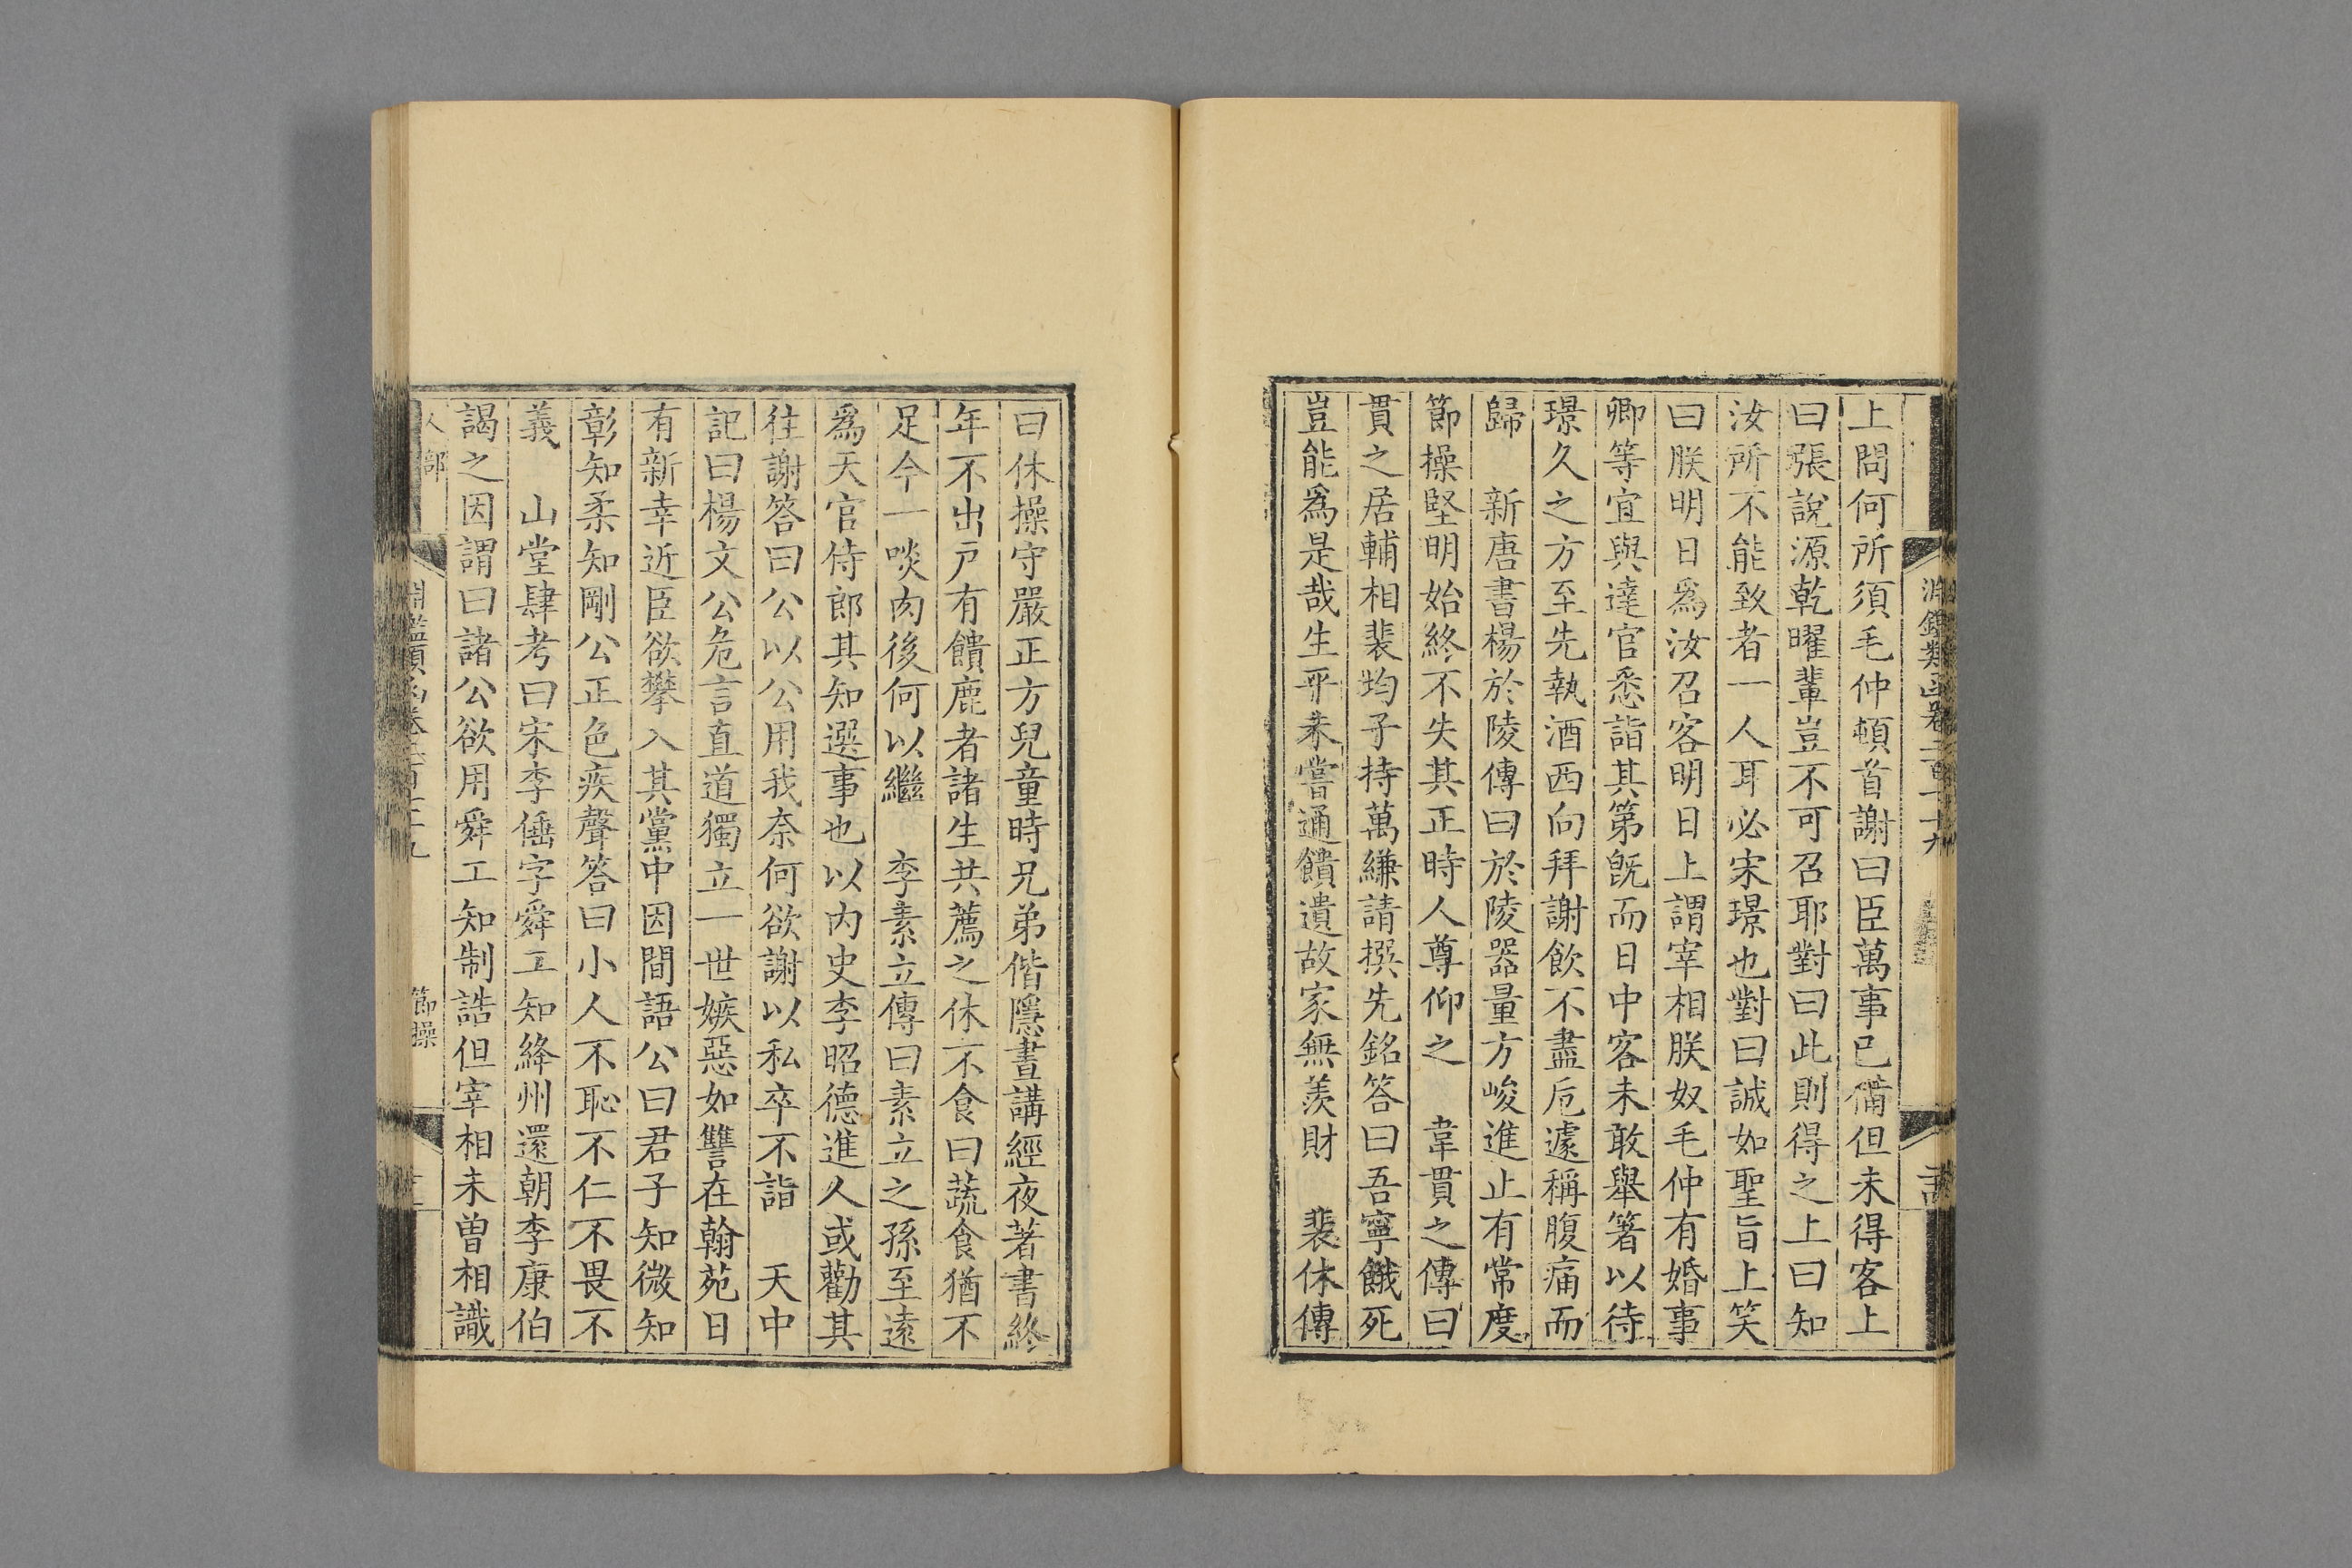 上問何所須毛仲頓首謝曰臣萬事已備但未得客上
曰張說源乾曜輩豈不可召耶對曰此則得之上曰知
汝所不能致者一人耳必宋璟也對曰誠如聖旨上笑
曰朕明日爲汝召客明日上謂宰相朕奴毛仲有婚事
卿等宜與達官悉詣其第旣而日中客未敢舉箸以待
璟久之方至先執酒西向拜謝飲不盡卮遽稱腹痛而
歸　新唐書楊於陵傳曰於陵器量方峻進止有常度
節操堅明始終不失其正時人尊仰之　韋貫之傳曰
貫之居輔相裴均子持萬縑請撰先銘答曰吾寧餓死
豈能爲是哉生平未嘗通饋遺故家無羨財　裴休傳
曰休操守嚴正方兒童時兄弟偕隱晝講經夜著書終
年不出戶有饋鹿者諸生共薦之休不食曰蔬食猶不
足今一啖肉後何以繼　李素立傳曰素立之孫至遠
爲天官侍郎其知選事也以內史李昭德進人或勸其
往謝答曰公以公用我奈何欲謝以私卒不詣　天中
記曰楊文公危言直道獨立一世嫉惡如讐在翰苑日
有新幸近臣欲攀入其黨中因間語公曰君子知微知
彰知柔知剛公正色疾聲答曰小人不恥不仁不畏不
義　山堂肆考曰宋李倕字舜工知絳州還朝李康伯
謁之因謂曰諸公欲用舜工知制誥但宰相未曾相識
人部
節操